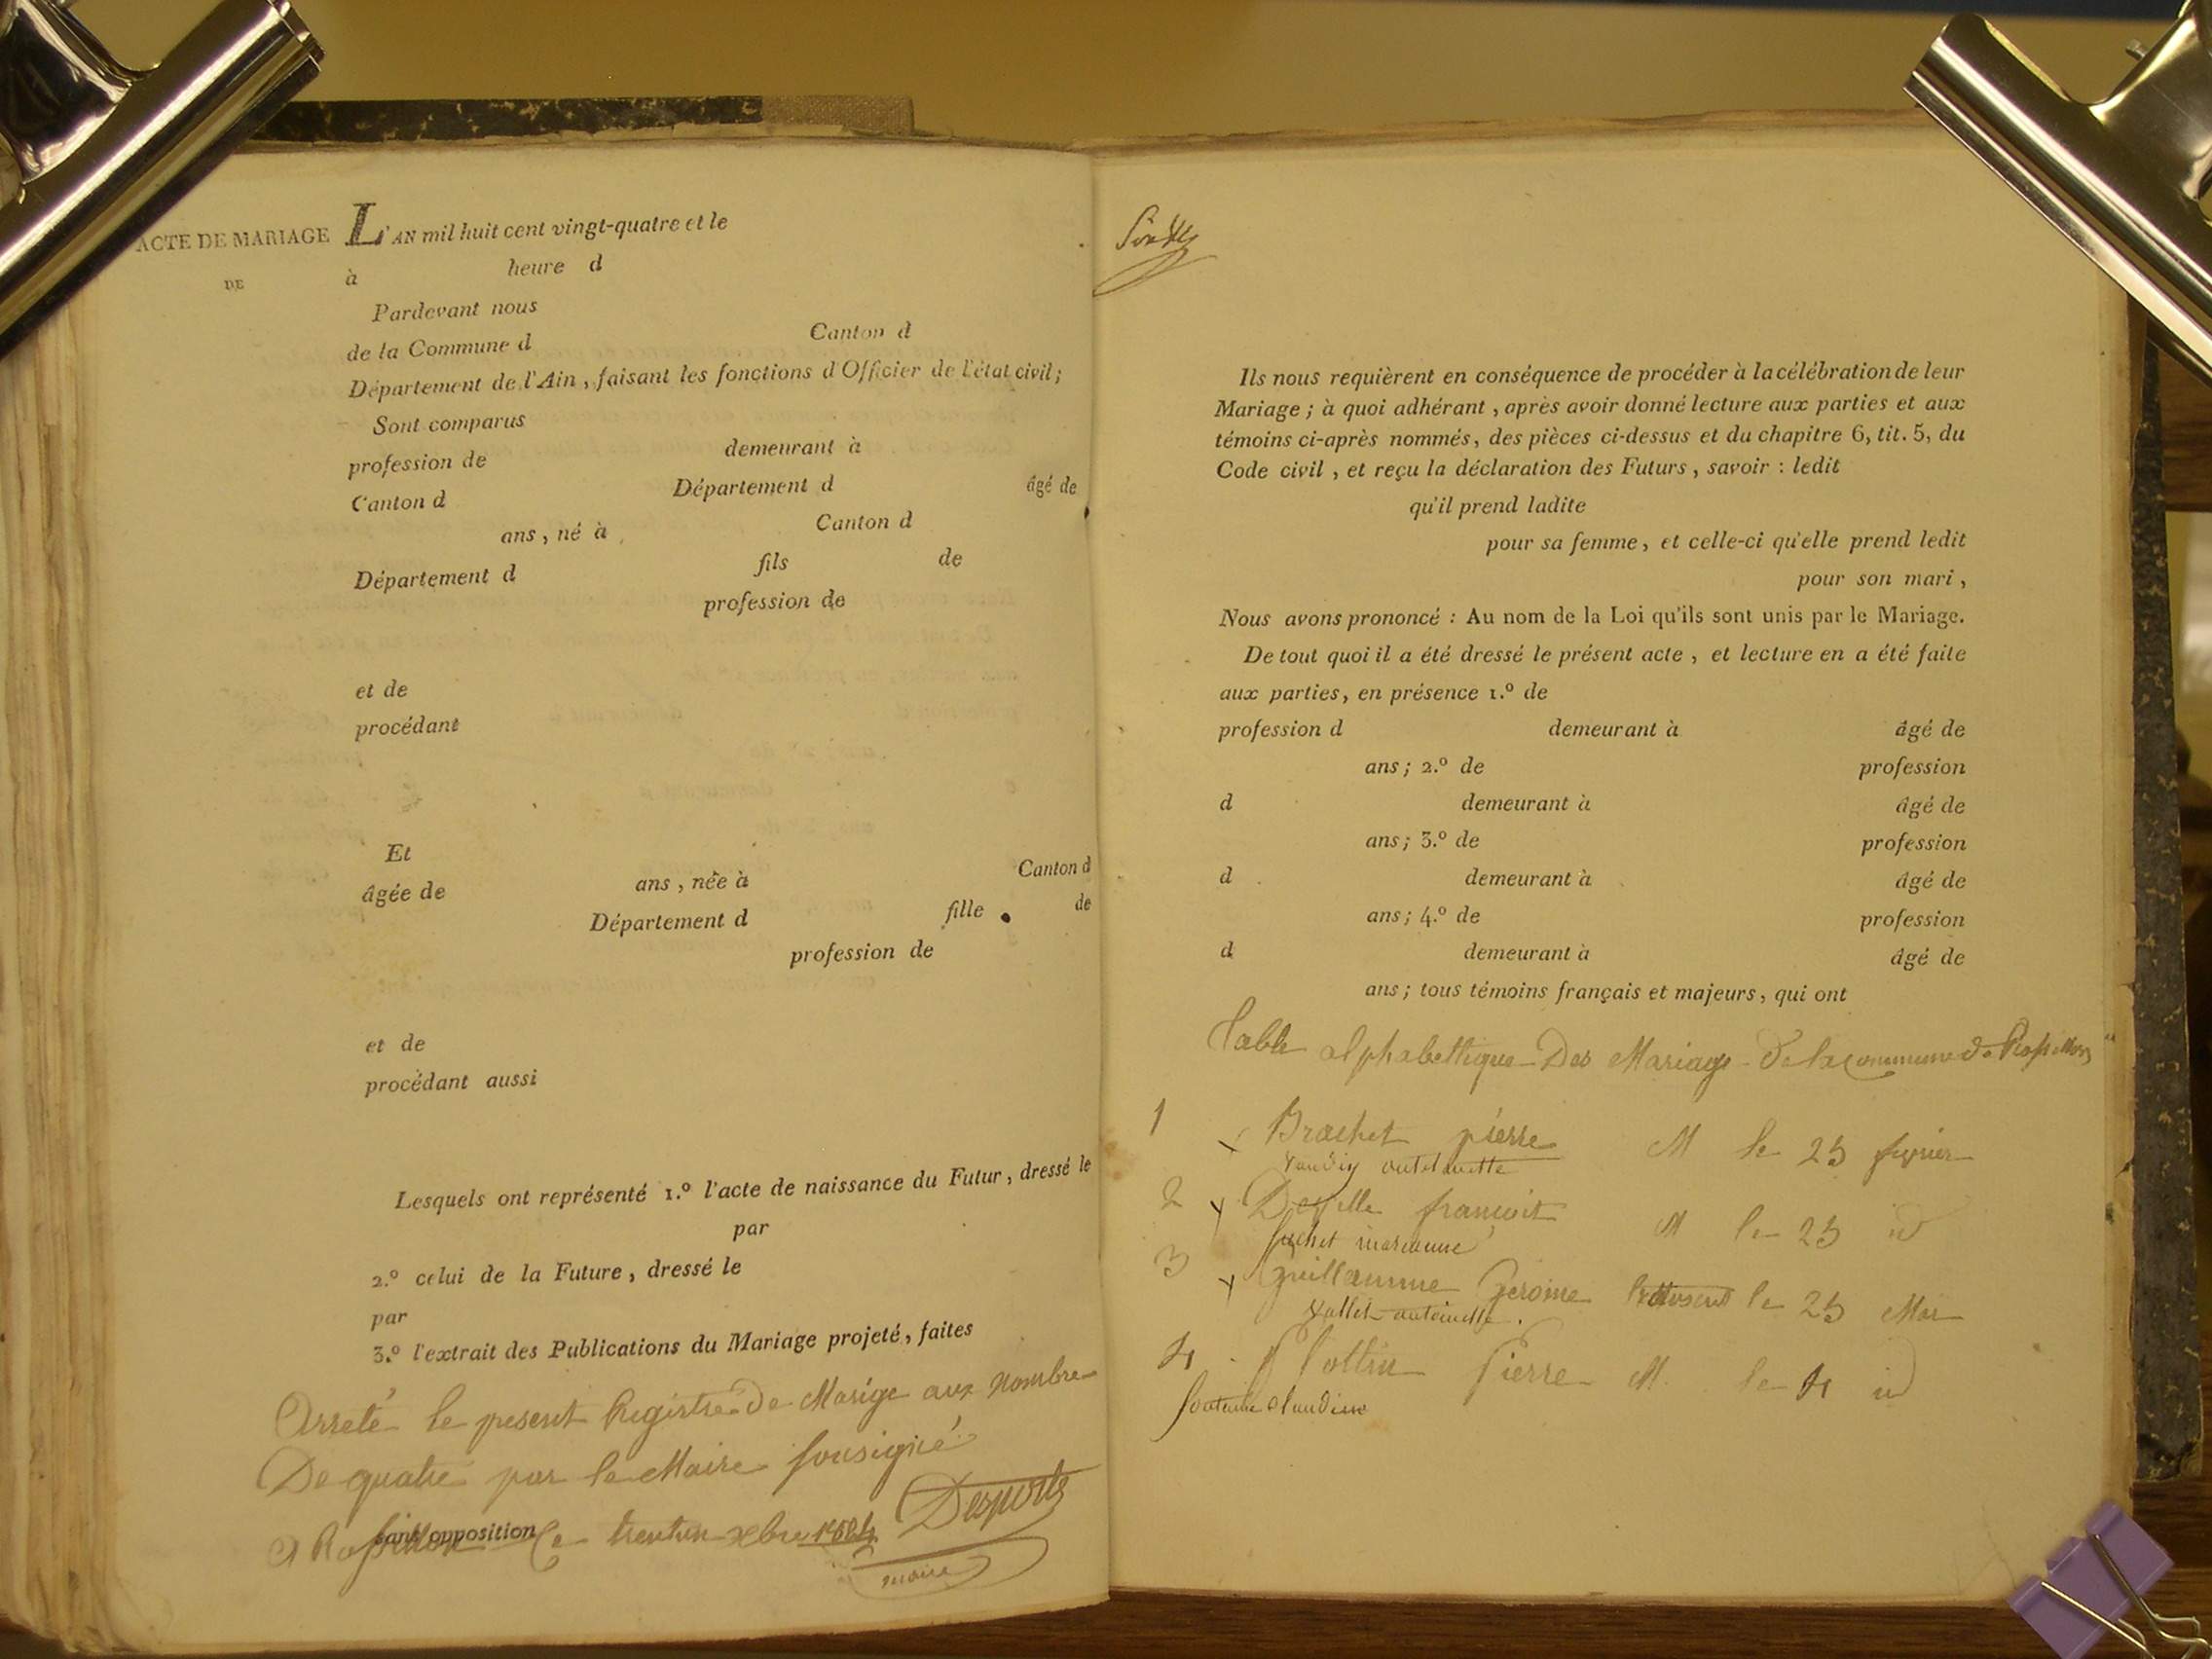 ACTE DE MARIAGE L'AN mil huit cent vingt-quatre et le
DE à heure d
Pardevant nous
de la Commune d Canton d
Département de l'Ain, faisant les fonctions d'Officier de l'état civil;
Sont comparus
profession de demeurant à
Canton d Département d âgé de
ans, né à Canton d
Département d fils de
profession de
et de
procédant
Et
âgée de ans, née à Canton d
Département d fille de
profession de
et de
procédant aussi
Lesquels ont représenté 1.º l'acte de naissance du Futur, dressé le
par
2.º celui de la Future, dressé le
par
3.º l'extrait des Publications du Mariage projeté, faites
Arreté le pesent Registre De Marige aux nombre
De quatre par le Maire sousigné
A Rossillon sans opposition Ce trentun xbre 1824 Desporte
maire
Ils nous requièrent en conséquence de procéder à la célébration de leur
Mariage; à quoi adhérant, après avoir donné lecture aux parties et aux
témoins ci-après nommés, des pièces ci-dessus et du chapitre 6, tit. 5, du
Code civil, et reçu la déclaration des Futurs, savoir : ledit
qu'il prend ladite
pour sa femme, et celle-ci qu'elle prend ledit
pour son mari,
Nous avons prononcé : Au nom de la Loi qu'ils sont unis par le Mariage.
De tout quoi il a été dressé le présent acte, et lecture en a été faite
aux parties, en présence 1.º de
profession d demeurant à âgé de
ans; 2.º de profession
d demeurant à âgé de
ans; 3.º de profession
d demeurant à âgé de
ans; 4.º de profession
d demeurant à âgé de
ans; tous témoins français et majeurs, qui ont
Table alphabettique Des Mariage De la Commune de Rossillon
1 Brachet pierre M le 25 fevrier
2 Deville françois M le 25 id
fuchet marianne
3 Guillaume Gerome le 25 Mai
Vallet antoinette.
4 Pottin Pierre M. le 4 id
fontaine Claudine